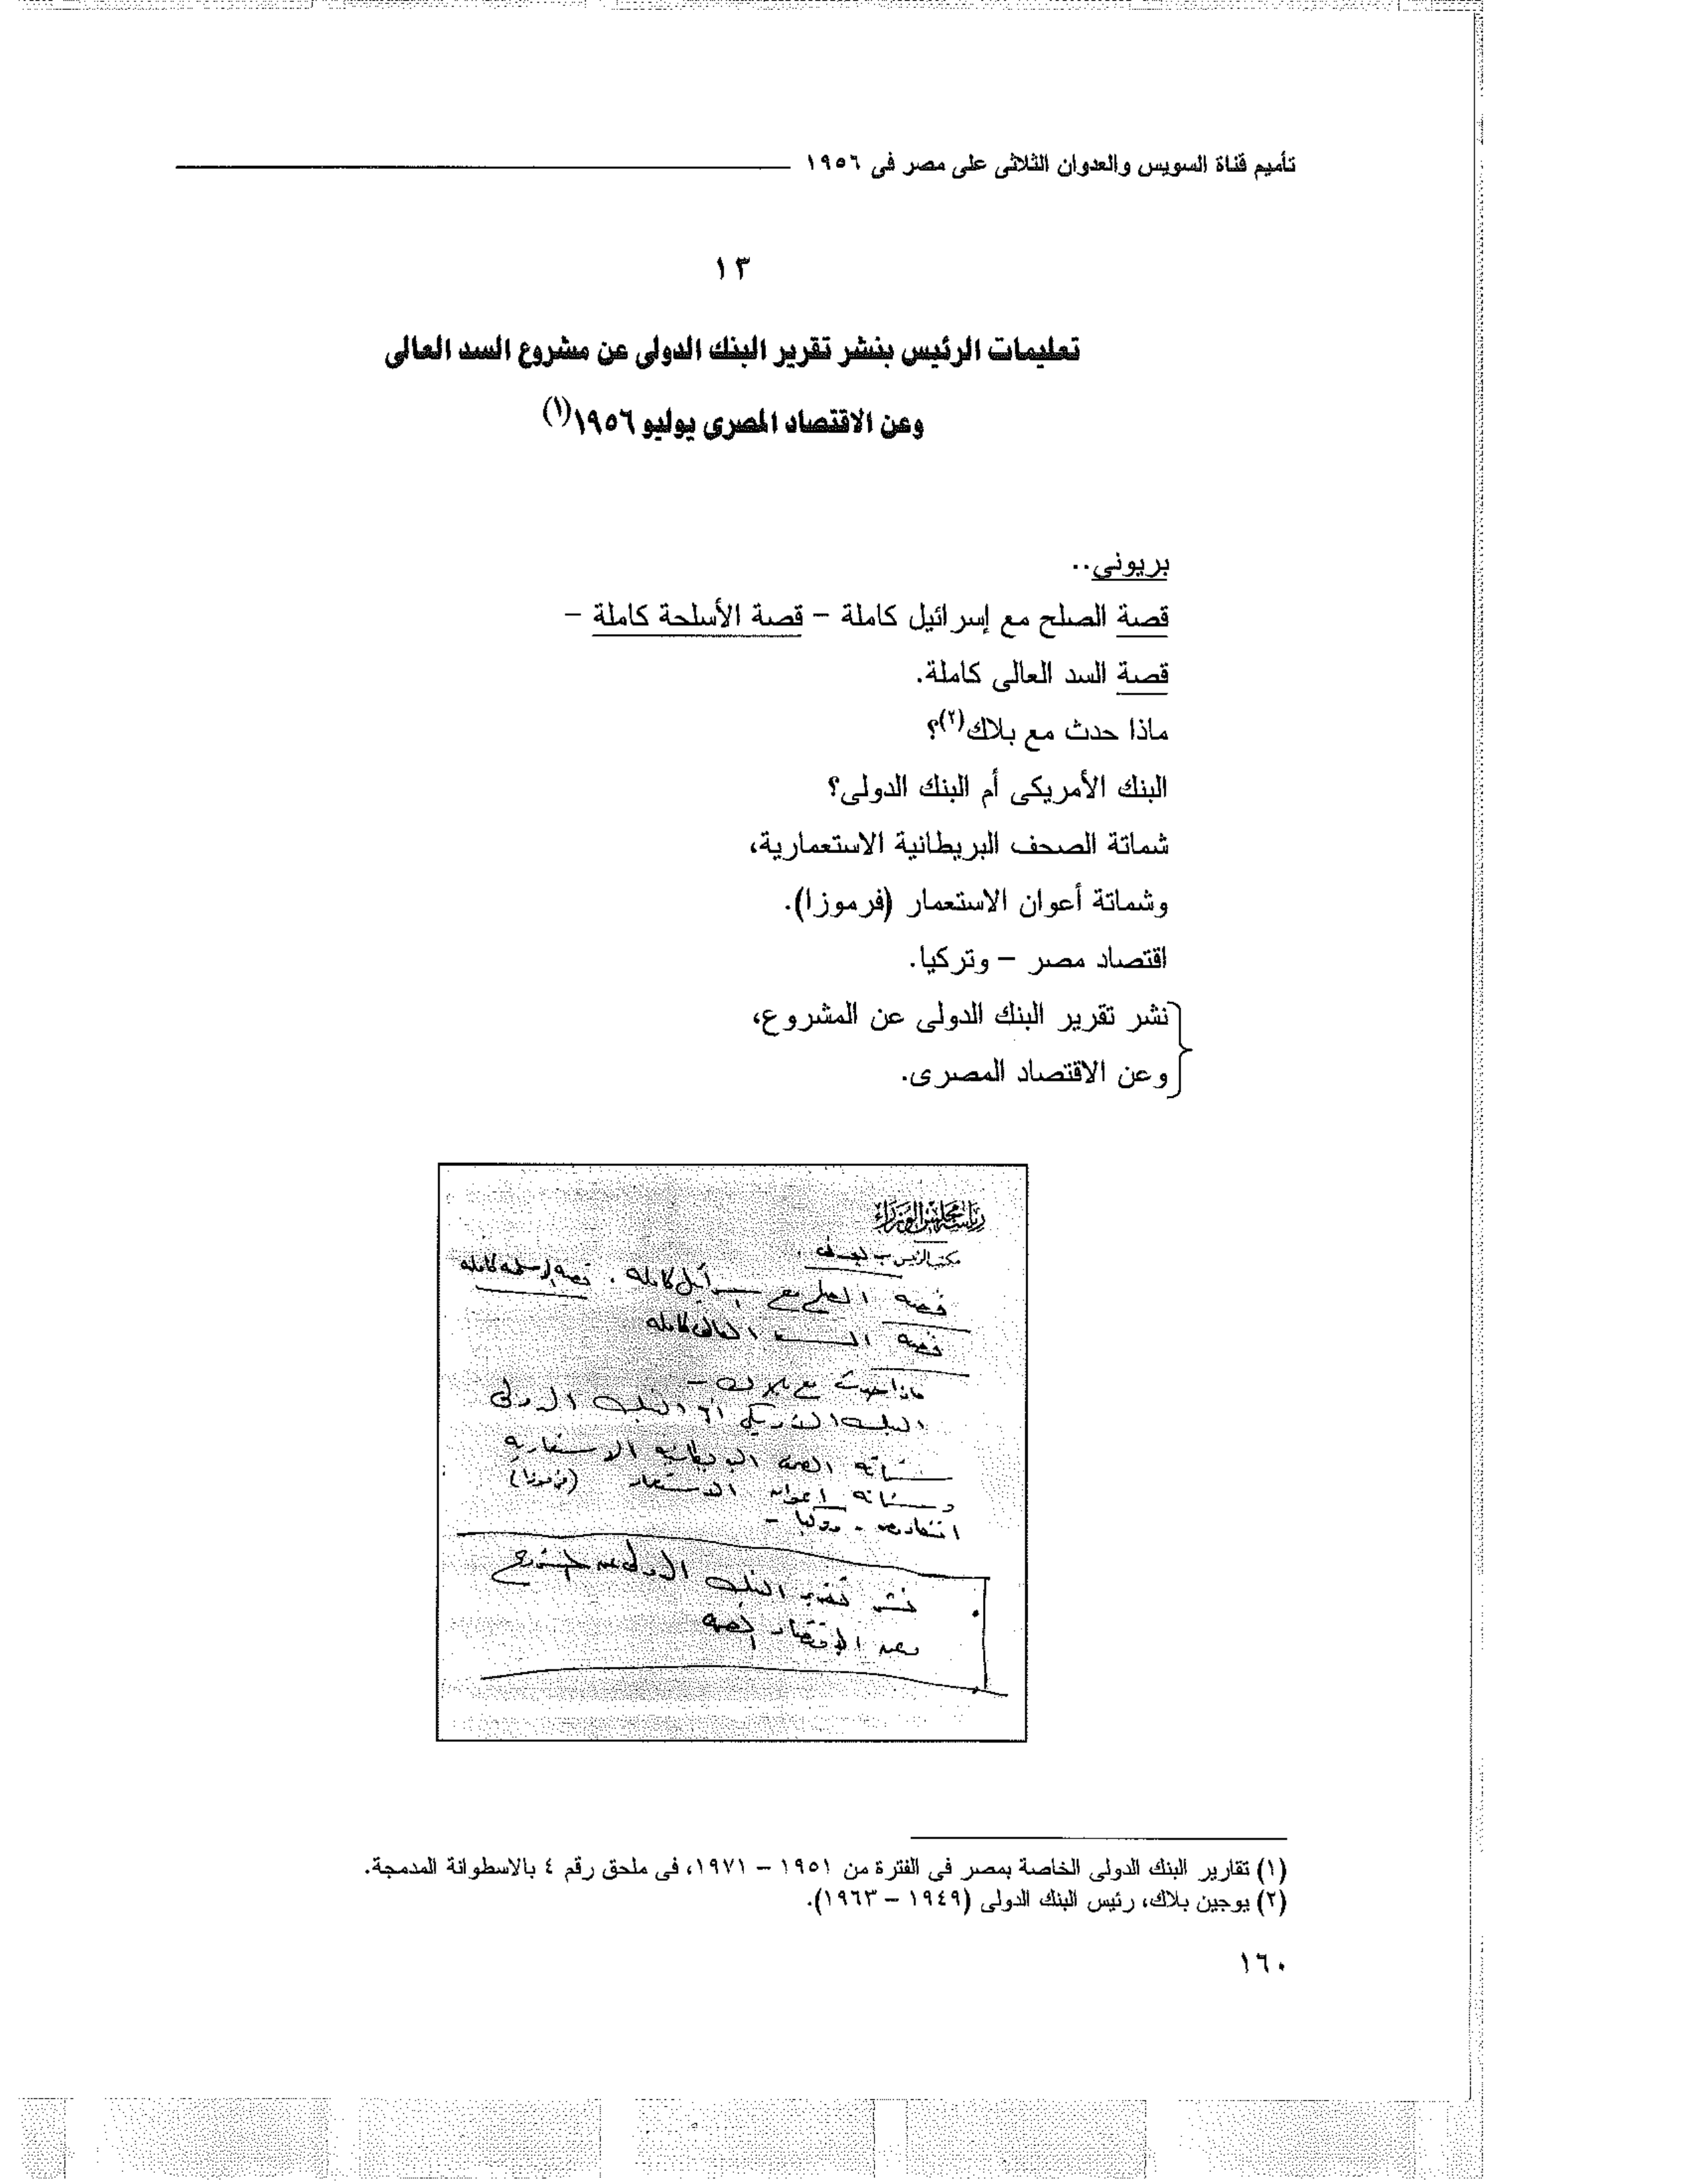 تأميم قناة السويس والعدوان الثلاثى على مصر فى ١٩٥٦
١٣
تعليمات الرئيس بنشر تقرير البنك الدولى عن مشروع السد العالى
وعن الاقتصاد المصرى يوليو ١٩٥٦(١)
بريونى..
قصة الصلح مع إسرائيل كاملة – قصة الأسلحة كاملة –
قصة السد العالى كاملة.
ماذا حدث مع بلاك(٢)؟
البنك الأمريكى أم البنك الدولى؟
شماتة الصحف البريطانية الاستعمارية،
وشماتة أعوان الاستعمار (فرموزا).
اقتصاد مصر – وتركيا.
نشر تقرير البنك الدولى عن المشروع،
وعن الاقتصاد المصرى.
رياسة مجلس الوزراء
مكتب الرئيس
قصه الصلح مع اسرائيل كامله . قصه الاسلحه كامله
قصه السد العالى كامله
ماذا حدث مع بلاك –
البنك الامريكى ام البنك الدولى
شماته الصحف البريطانيه الاستعماريه
وشماته اعوان الاستعمار (فرموزا)
اقتصاد مصر -
نشر تقرير البنك الدولى عن المشروع
وعن الاقتصاد المصرى
(١) تقارير البنك الدولى الخاصة بمصر فى الفترة من ١٩٥١ – ١٩٧١، فى ملحق رقم ٤ بالاسطوانة المدمجة.
(٢) يوجين بلاك، رئيس البنك الدولى (١٩٤٩ – ١٩٦٣).
١٦٠